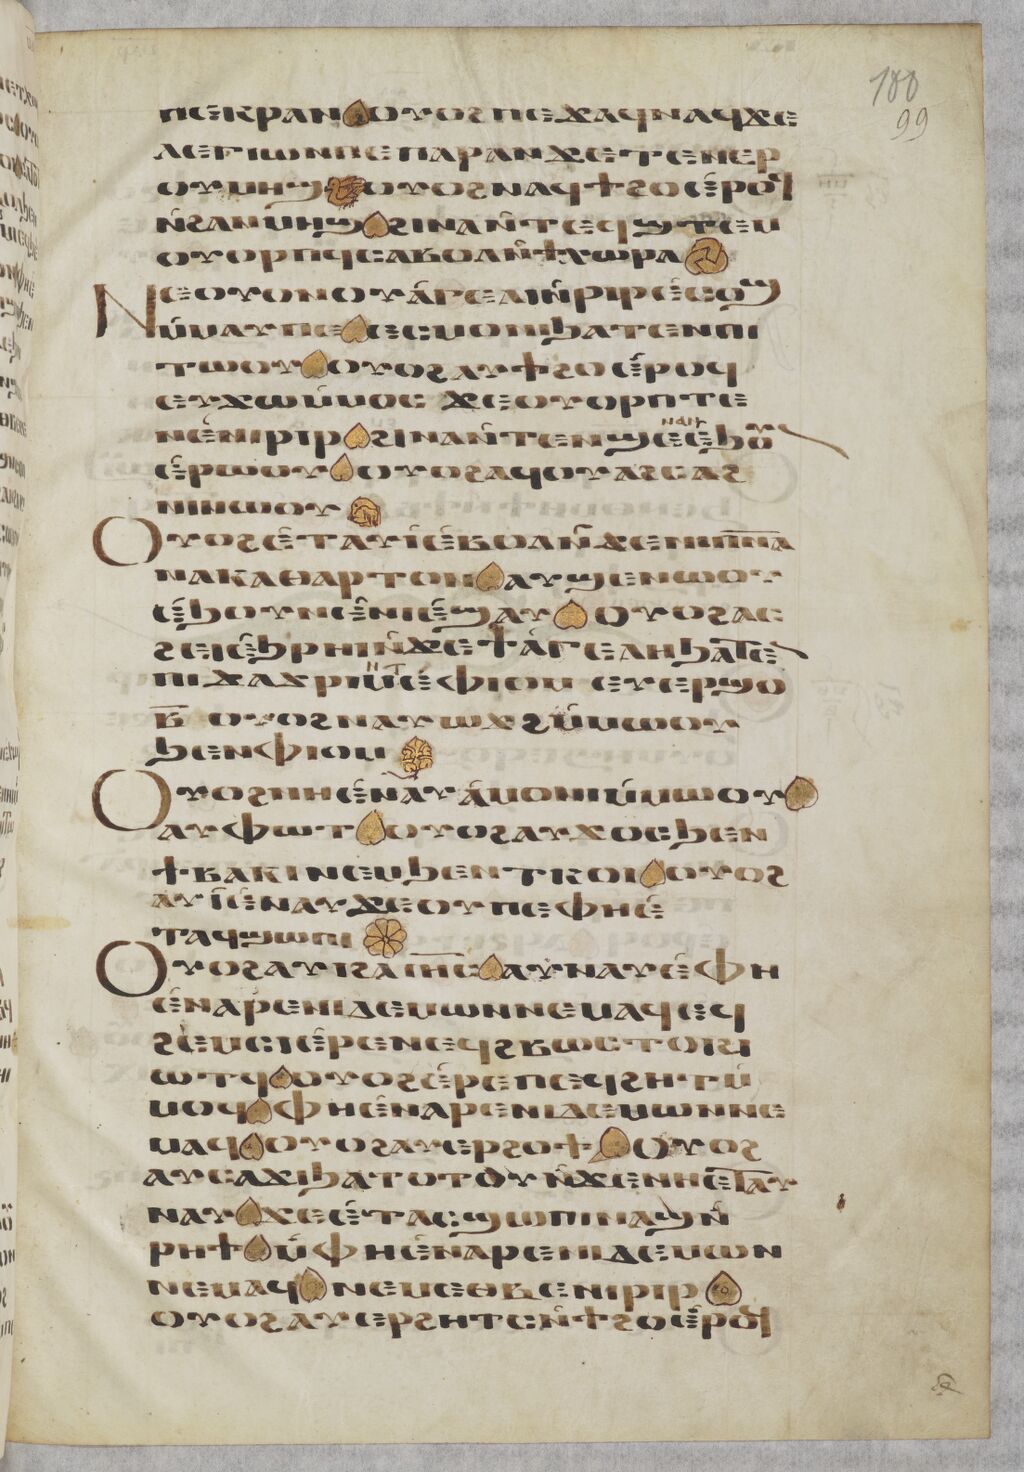 100
99
ⲡⲉⲕⲣⲁⲛ ⲟⲩⲟϩ ⲡⲉϫⲁϥ ⲛⲁϥ ϫⲉ
ⲗⲉⲅⲓⲱⲛ ⲡⲉ ⲡⲁⲣⲁⲛ ϫⲉ ⲧⲉⲛⲉⲣ
ⲟⲩⲙⲏϣ ⲟⲩⲟϩ ⲛⲁϥϯϩⲟ ⲉ̇ⲣⲟϥ
ⲛ̇ϩⲁⲛⲙⲏϣ ϩⲓⲛⲁ ⲛ̇ⲧⲉϥϣⲧⲉⲙ
ⲟⲩⲟⲣⲡϥ ⲥⲁⲃⲟⲗ ⲛ̇ϯⲭⲱⲣⲁ
ⲛⲉ ⲟⲩⲟⲛ ⲟⲩⲁ̇ⲅⲉⲗⲏ ⲛ̇ⲣⲓⲣ ⲉ̇ⲥⲟϣ
ⲙ̇ⲙⲁⲩ ⲡⲉ ⲉⲥⲙⲟⲛⲓ ϧⲁⲧⲉⲛ ⲡⲓ
ⲧⲱⲟⲩ ⲟⲩⲟϩ ⲁⲩϯϩⲟ ⲉ̇ⲣⲟϥ
ⲉⲩϫⲱ ⲙ̇ⲙⲟⲥ ϫⲉ ⲟⲩⲟⲣⲡⲧⲉ
ⲛ ⲉ̇ⲛⲓⲣⲓⲣ ϩⲓⲛⲁ ⲛ̇ⲧⲉⲛϣⲉⲛⲁⲛ ⲉ̇ϧⲟⲩ
ⲉ̇ⲣⲱⲟⲩ ⲟⲩⲟϩ ⲁϥⲟⲩⲁϩⲥⲁϩ
ⲛⲓ ⲛⲱⲟⲩ
ⲟⲩⲟϩ ⲉ̇ⲧⲁⲩⲓ̇ ⲉ̇ⲃⲟⲗ ⲛ̇ϫⲉ ⲛⲓⲡⲛⲁ
ⲛⲁⲕⲁⲑⲁⲣⲧⲟⲛ ⲁⲩϣⲉⲛⲱⲟⲩ
ⲉ̇ϧⲟⲩⲛ ⲉ̇ⲛⲓⲉ̇ϣⲁⲩ ⲟⲩⲟϩ ⲁⲥ
ϩⲉⲓ ⲉ̇ϧⲣⲏⲓ ⲛ̇ϫⲉ ϯⲁ̇ⲅⲉⲗⲏ ϧⲁⲧⲉⲛ
ⲡⲓϫⲁϫⲣⲓⲙ ⲛⲧ ⲉ̇ⲫⲓⲟⲙ ⲉⲩⲉⲣϣⲟ
ⲃ̅ ⲟⲩⲟϩ ⲛⲁⲩⲱϫϩ ⲙ̇ⲙⲱⲟⲩ
ϧⲉⲛ ⲫⲓⲟⲙ
ⲟⲩⲟϩ ⲛⲏ ⲉ̇ⲛⲁⲩⲁ̇ⲙⲟⲛⲓ ⲙ̇ⲙⲱⲟⲩ
ⲁⲩⲫⲱⲧ ⲟⲩⲟϩ ⲁⲩϫⲟⲥ ϧⲉⲛ
ϯⲃⲁⲕⲓ ⲛⲉⲙ ϧⲉⲛ ⲧⲕⲟⲓ ⲟⲩⲟϩ
ⲁⲩⲓ̇ ⲉ̇ⲛⲁⲩ ϫⲉ ⲟⲩ ⲡⲉ ⲫⲏ ⲉ̇
ⲧⲁϥϣⲱⲡⲓ
ⲟⲩⲟϩ ⲁⲩⲓ̇ ϩⲁ ⲓⲏⲥ ⲁⲩⲛⲁⲩ ⲉ̇ⲫⲏ
ⲉ̇ⲛⲁⲣⲉ ⲛⲓⲇⲉⲙⲱⲛ ⲛⲉⲙⲁϥ ⲉϥ
ϩⲉⲙⲥⲓ ⲉ̇ⲣⲉ ⲛⲉϥϩⲃⲱⲥ ⲧⲟⲓ ϩⲓ
ⲱⲧϥ ⲟⲩⲟϩ ⲉ̇ⲣⲉ ⲡⲉϥϩⲏⲧ ⲙ̇
ⲙⲟϥ ⲫⲏ ⲉ̇ⲛⲁⲣⲉ ⲛⲓⲇⲉⲙⲱⲛ ⲛⲉ
ⲙⲁϥ ⲟⲩⲟϩ ⲁⲩⲉⲣϩⲟϯ ⲟⲩⲟϩ
ⲁⲩⲥⲁϫⲓ ϧⲁⲧⲟⲧⲟⲩ ⲛ̇ϫⲉ ⲛⲏ ⲉ̇ⲧⲁⲩ
ⲛⲁⲩ ϫⲉ ⲉ̇ⲧⲁⲥϣⲱⲡⲓ ⲛⲁϣ ⲛ̇
ⲣⲏϯ ⲙ̇ⲫⲏ ⲉ̇ⲛⲁⲣⲉ ⲛⲓⲇⲉⲙⲱⲛ
ⲛⲉⲙⲁϥ ⲛⲉⲙ ⲉⲑⲃⲉ ⲛⲓⲣⲓⲣ
ⲟⲩⲟϩ ⲁⲩⲉⲣϩⲏⲧⲥ ⲛ̇ϯϩⲟ ⲉ̇ⲣⲟϥ